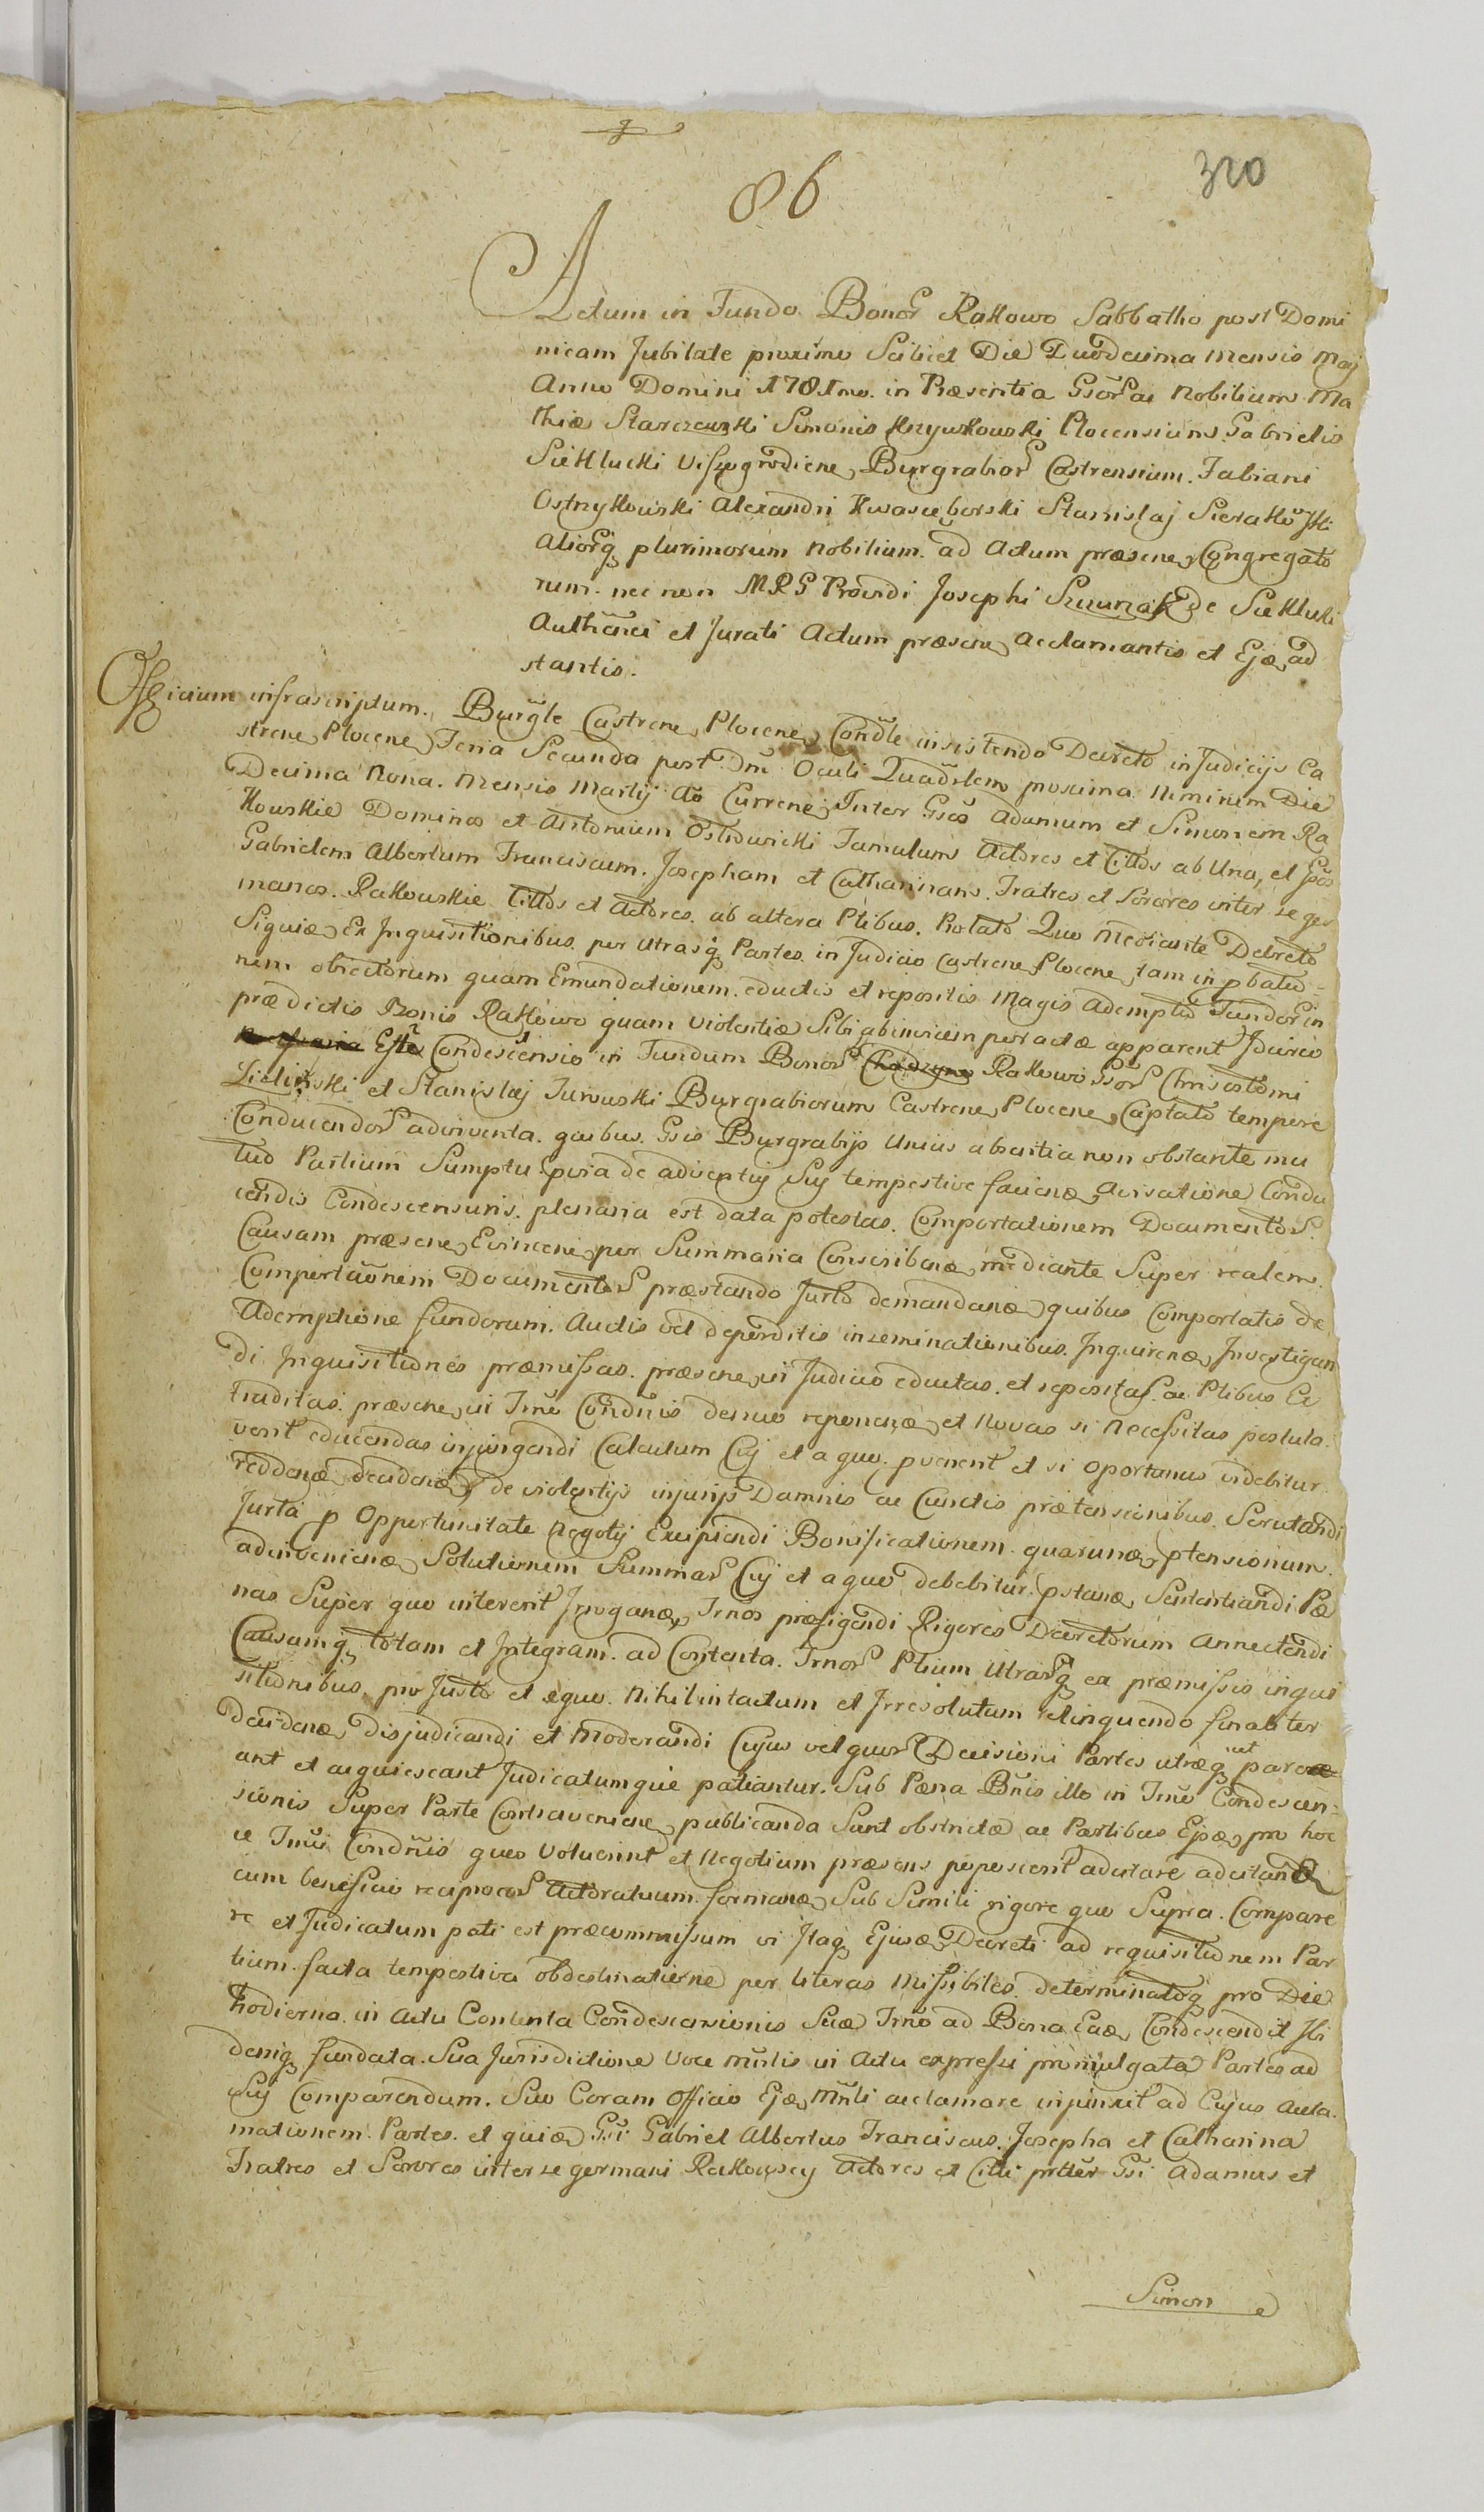 86
320
Actum in Fundo Bonor Rakowo Sabbatho post Domi
nicam Jubilate proximo Scilicet Die Duodecima Mensis Maj
Anno Domini 1781mo. in Præsentia Gsor ac Nobilium Ma
thiæ Starczewski Simonis Krzywkowski Plocensium Gabrielis
Siekłucki Wiszogrodiene Burgrabior Castrensium. Fabiani
Ostrzykowski Alexandri Kwasieborski Stanislaj Sierakowski
Aliorq plurimorum Nobilium. ad Actum præsene Congregato
rum. nec non MRS Providi Josephi de Siekluki
Authentici et Jurati Actum præsene acclamantis et Ejæ ad
stantis.
Officium infrascriptum. Burgle Castrene Plocene Condle insistendo Decreto in Judicijs Ca
strene Plocene Feria Secunda post Dni Oculi Quadrlem proxima Niminem Die
Decima Nona. Mensis Martij Ao Currene Inter Gsos Adamum et Simonem Ra
kowskie Dominos et Antonium Ostrowicki Famulum Actores et Cittos ab Una, et Gsos
Gabrielem Albertum Franciscum. Josepham et Catharinam. Fratres et Sorores inter se ger
manos. Rakowskie Cittos et Actores. ab altera Ptibus. Prolato Quo Mediante Decreto
Siquiæ Ex Inquisitionibus per Utrasq Partes in Judicio Castrene Plocene tam in pbatio-
nem obiectorum quam Emundationem. eductis et repositis Magis Ademptio Fundor in
prædictis Bonis Rakowo quam Violentiæ Sibi abinvicem peractæ apparent Idcirco
Condescensio in Fundum Bonor Rakowo Gsor Chrisostomi
Zielinski et Stanislaj Turowski Burgrabiorum Castrene Plocene Captato tempore
Conducendor adinventa. quibus. Gsis Burgrabijs Unius absentia non obstante mu
tuo Partium Sumptu de adventu Suj tempestive faciene avisatione Condu
cendis Condescensuris. plenaria est data potestas. Comportationem Documentor
Causam præsene per Summaria Conscribene mediante Super realem
Comportaonem Documentor præstando Jurto demandane quibus Comportatis de
Ademptione fundorum. Auctis vel deperditis inseminationibus. Inquirene Investigan
di Inquisitiones præmissas. præsene in Judicio eductas. et repositas. ac Ptibus Ex
traditas. præsene in Trno Condnis denuo reponene et Novas si Necessitas postula.
verit educendas injungendi Calculum Cuj et a quo. pvenerit et si oportunus videbitur.
reddene decidene de violentijs injurijs Damnis ac Cunctis prætensionibus. Scrutandi
Jurta p Opportunitate Negotij Excipiendi Bonificationem quarunæ ptensionum.
adinveniene Solutionem Summar Cuj et a quo debebitur. pstane Sententiandi Pæ
nas Super quo intererit Irrogane Trnos præfigendi Rigores Decretorum Annectendi
Causamq totam et Integram. ad Contenta. Trnor Ptium Utrarq ex præmissis inqui
sitionibus. pro justo et equo. Nihil intactum et Irresolutum relinquendo finaliter
decidene disjudicandi et Moderandi Cujus vel quor Decisioni Partes utræq paream
ant et acquiescant Judicatumque patiantur. Sub Pæna Bnis illo in Trno Condescen-
sionis Super Parte Contraveniene publicanda Sunt obstrictæ ac Partibus Ejæ pro hoc
ce Trno Condnis quos Voluerint et Negotium præsens poposcerit adcitare adcitan
cum beneficio reciprocor Actoratuum. formane Sub Simili rigore quo Supra. Compare
re et Judicatum pati est præcommissum vi Itaq Ejusæ Decreti ad requisitionem Par
tium. facta tempestiva obdestinatione per literas Missibiles. determinatoq pro Die
hodierna. in Actu Contenta Condescensionis Suæ Trno ad Bona Eaæ Condescendit Ibi
deniq fundata. Sua Jurisdictione Voce Mnlis in Actu expressi promulgata Partes ad
Suj Comparendum. Suo Coram Officio Ejæ Mnli acclamare injunxit ad Cujus accla.
mationem. Partes. et quiæ Gsi Gabriel Albertus Franciscus. Josepha et Catharina
Fratres et Sorores inter se germani Rakowscy Actores et Citti prtter Gsi Adamus et
Simon